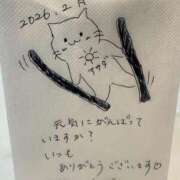 2026.2月
アサヲ
元気にがんばって
いますか?
いつも
ありがとうございます♡